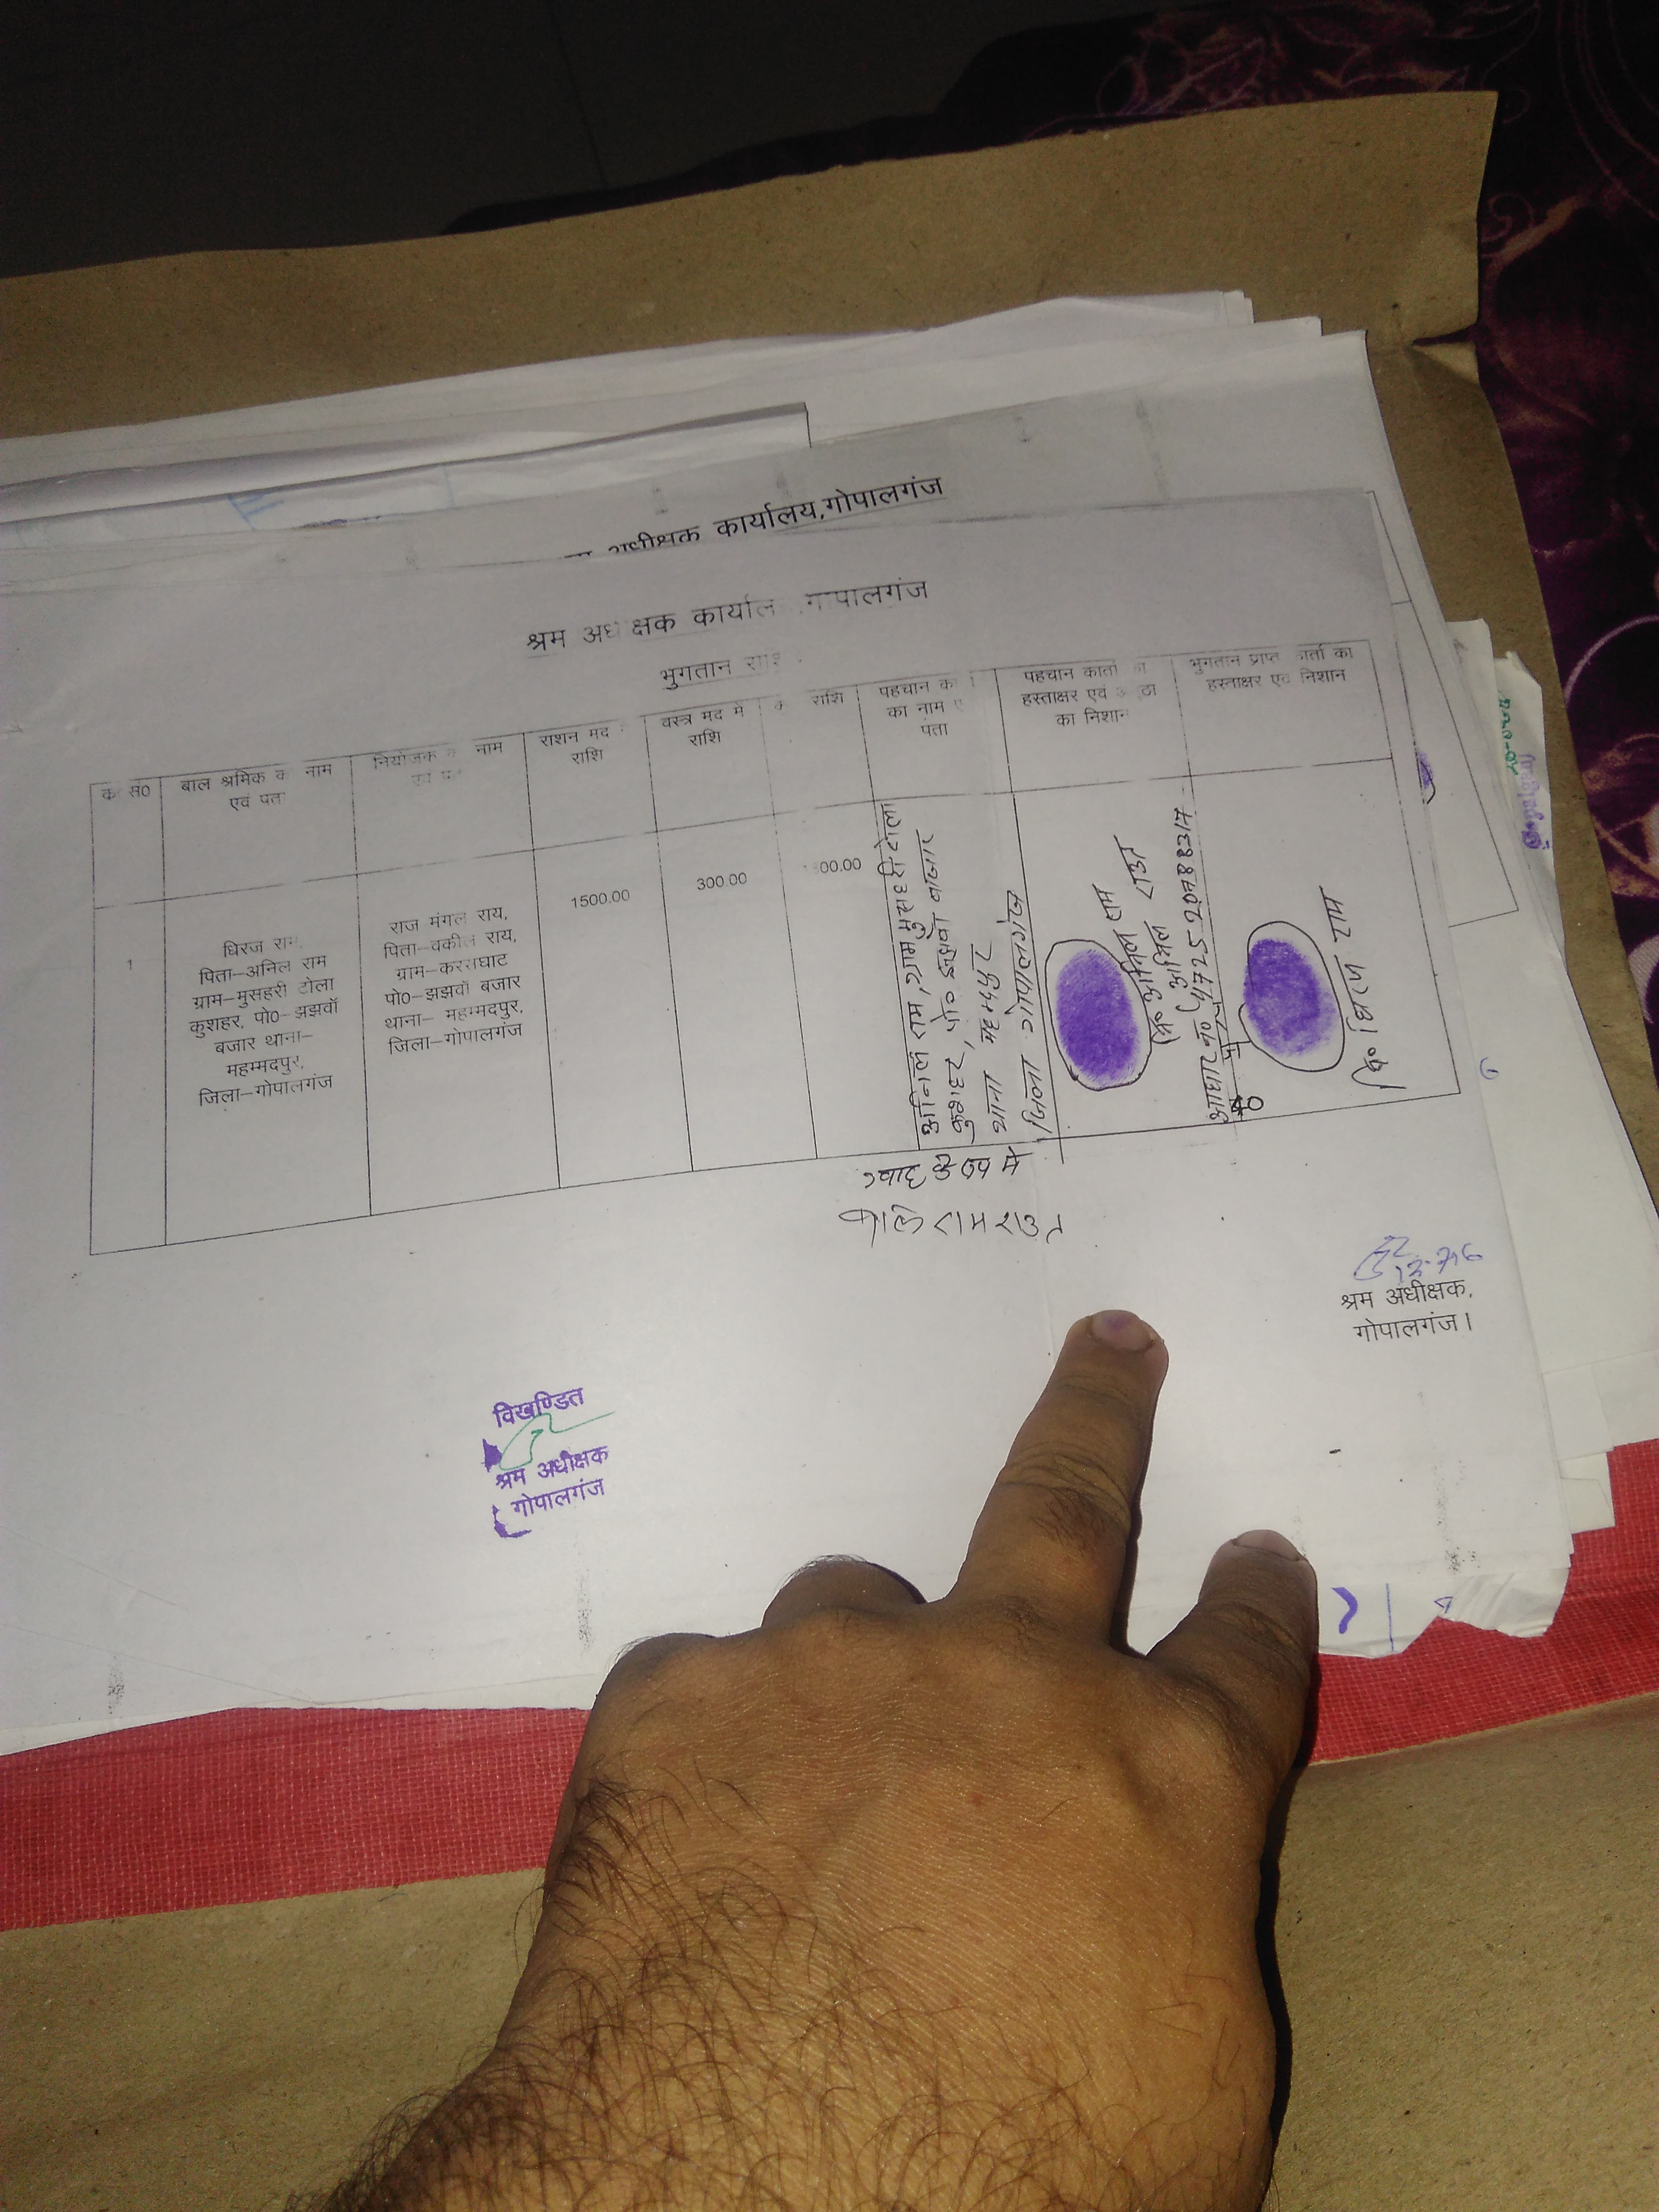 अधीक्षक कार्यालय,गोपालगंज
श्रम अधीक्षक कार्यालय गोपालगंज
भुगतान राशि
क्र सं0
बाल श्रमिक का नाम
एवं पता
नियोजक का नाम
एवं पता
राशन मद
राशि
वस्त्र मद मे
राशि
राशि
पहचान
का नाम
पता
पहचान कर्ता का
हस्ताक्षर एवं
का निशान
भुगतान प्राप्त कर्ता का
हस्ताक्षर एवं निशान
1
धिरज राम,
पिता–अनिल राम
ग्राम–मुसहरी टोला
कुशहर, पो0–झझवॉ
बजार थाना–
महम्मदपुर,
जिला–गोपालगंज
राज मंगल राय,
पिता–वकील राय,
ग्राम–करसघाट
पो0–झझवॉ बजार
थाना– महम्मदपुर,
जिला–गोपालगंज
1500.00
300.00
00.00
अनिल राम, ग्राम मुसहरी टोला
कुशहर, पो० झझवॉ बाजार
थाना महम्मदपुर
जिला गोपालगंज
नि० अनिल राम
अनिल राउत
आधार नं०
नि० धिरज राम
गवाह के रूप मे
राम राउत
श्रम अधीक्षक,
गोपालगंज।
विखण्डित
श्रम अधीक्षक
गोपालगंज